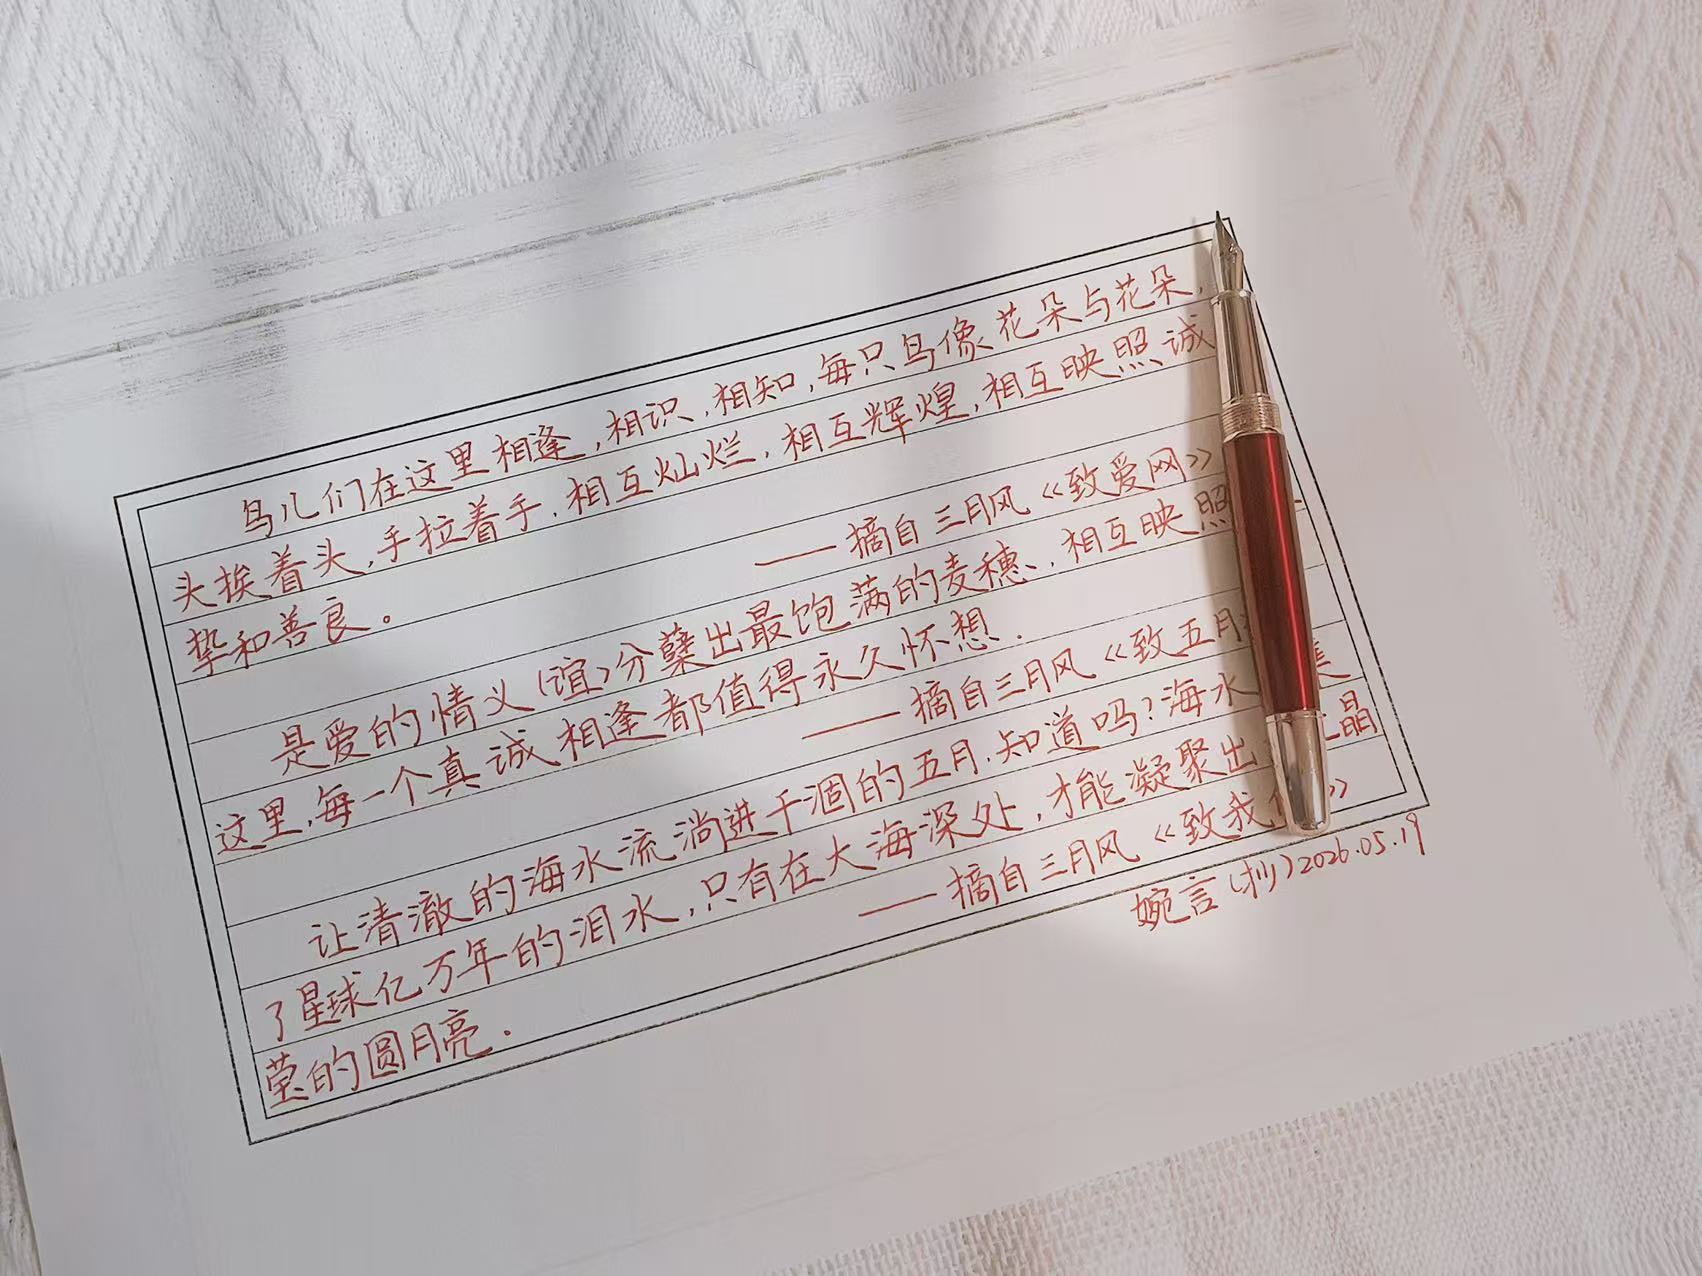 鸟儿们在这里相逢,相识,相知,每只鸟像花朵与花朵,
头挨着头,手拉着手,相互灿烂,相互辉煌,相互映照诚
挚和善良。
——摘自三月风《致爱网》
是爱的情义(谊)分蘖出最饱满的麦穗,相互映照
这里,每一个真诚相逢都值得永久怀想.
——摘自三月风《致五月
让清澈的海水流淌进干涸的五月.知道吗?海水
了星球亿万年的泪水,只有在大海深处,才能凝聚出 晶
莹的圆月亮.
——摘自三月风《致我 》
婉言(抄)2026.05.19